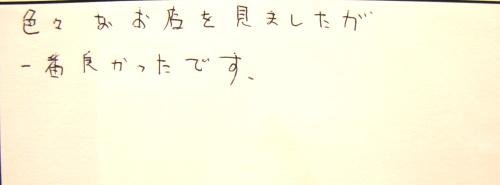 色々なお店を見ましたが
一番良かったです、